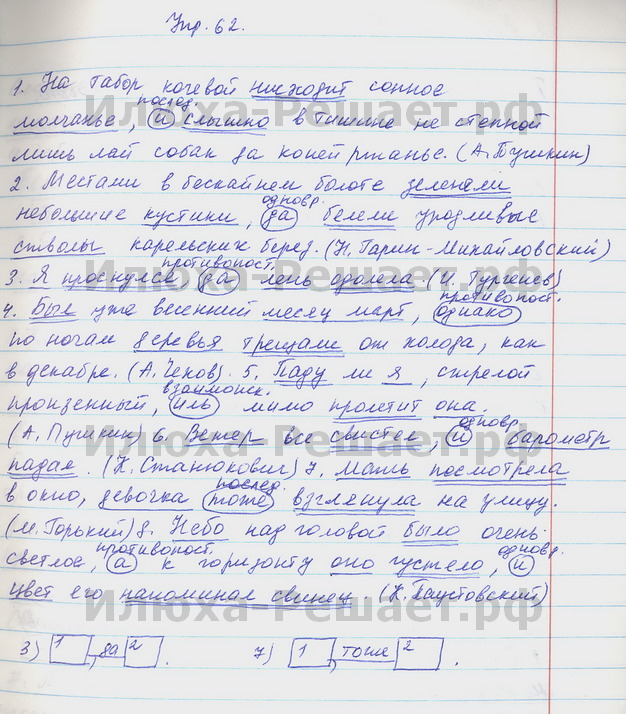 Упр. 62.
1. На табор кочевой нисходит сонное
послед.
молчанье, и слышно в тишине не степной
лишь лай собак да коней ржанье. (А. Пушкин)
2. Местами в бескайнем болоте зеленели
одновр.
небольшие кустики, да белели уродливые
стволы карельских берез. (Н. Гарин-Михайловский)
противопост.
3. Я проснулся да лень одолела (И. Тургенев)
противопост.
4. Был уже весенний месяц март, однако
по ночам деревья трещали от холода, как
в декабре. (А. Чехов). 5. Паду ли я, стрелой
взаимоиск.
пронзенный, иль мимо пролетит она.
одновр.
(А. Пушкин) 6. Ветер все свистел, и барометр
падал. (К. Станюкович) 7. Мать посмотрела
послед.
в окно, девочка тоже взглянула на улицу.
(М. Горький) 8. Небо над головой было очень
противопост. одновр.
светлое, а к горизонту оно густело, и
цвет его напоминал свинец. (К. Паустовский)
3) 1 , да 2 . 7) 1 , тоже 2 .
Илюха-Решает.рф
Илюха-Решает.рф
Илюха-Решает.рф
Илюха-Решает.рф